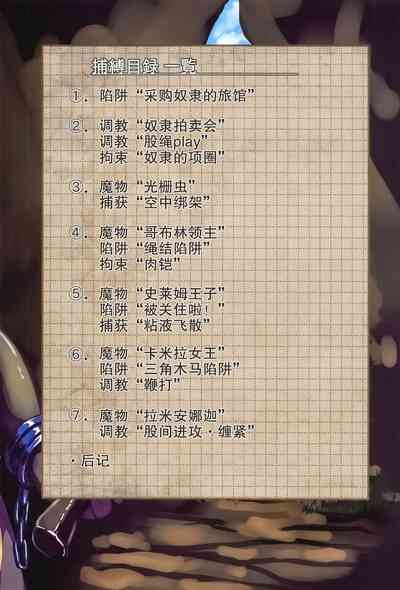 捕縛目録 一覧
①. 陷阱“采购奴隶的旅馆”
②. 调教“奴隶拍卖会”
调教“股绳play”
拘束“奴隶的项圈”
③. 魔物“光栅虫”
捕获“空中绑架”
④. 魔物“哥布林领主”
陷阱“绳结陷阱”
拘束“肉铠”
⑤. 魔物“史莱姆王子”
陷阱“被关住啦！”
捕获“粘液飞散”
⑥. 魔物“卡米拉女王”
陷阱“三角木马陷阱”
调教“鞭打”
⑦. 魔物“拉米安娜迦”
调教“股间进攻·缠紧”
·后记